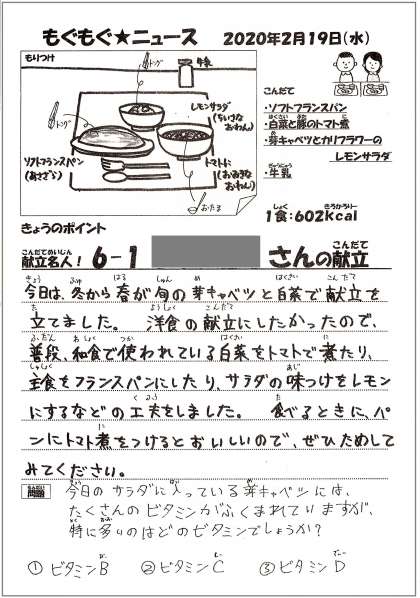 もぐもぐ★ニュース 2020年2月19日(水)
もりつけ
牛乳
トング
レモンサラダ
(ちいさな
おわん)
トング
ソフトフランスパン
(あさざら)
トマトに
(おおきな
おわん)
おたま
こんだて
・ソフトフランスパン
・白菜と豚のトマト煮
・芽キャベツとカリフラワーの
レモンサラダ
・牛乳
1食:602kcal
きょうのポイント
献立名人! 6-1 さんの献立
今日は、冬から春が旬の芽キャベツと白菜で献立を
立てました。 洋食の献立にしたかったので、
普段、和食で使われている白菜をトマトで煮たり、
主食をフランスパンにしたり、サラダの味つけをレモン
にするなどの工夫をしました。 食べるときに、パ
ンにトマト煮をつけるとおいしいので、ぜひためして
みてください。
問題 今日のサラダに入っている芽キャベツには、
たくさんのビタミンがふくまれていますが、
特に多いのはどのビタミンでしょうか?
①ビタミンB ②ビタミンC ③ビタミンD